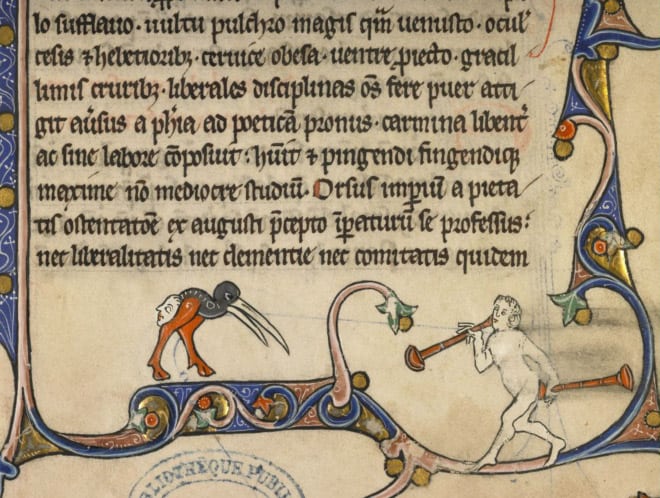 lo sufflauo · uultu pulchro magis qm̄ uenusto · ocul
cesis ⁊ hebetioribꝫ · ceruice obesa · uentre piecto · gracil
limis cruribꝫ · liberales disciplinas oēs fere puer atti
git aūsus a phīa ad poeticā pronus · carmina libent᷑
ac sine labore cōposuit · huit ⁊ pingendi fingendiqꝫ
maxime nō mediocre studiū · Orsus imꝑiū a pieta
tis ostentatōe ex augusti p̄cepto īꝑaturū se professus ·
nec liberalitatis nec clementie nec comitatis quidem
BIBLIOTHÈQUE PUBLI